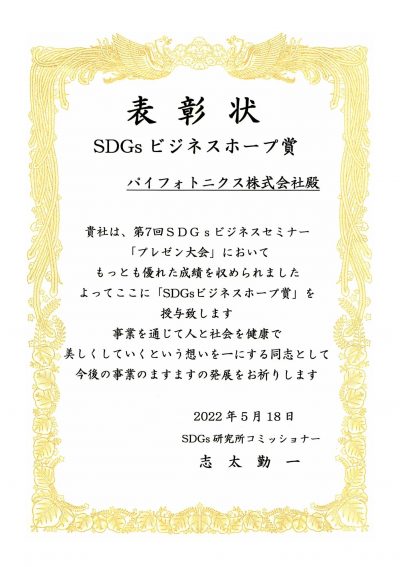 表彰状
SDGs ビジネスホープ賞
パイフォトニクス株式会社殿
貴社は、第7回ＳＤＧｓビジネスセミナー
「プレゼン大会」において
もっとも優れた成績を収められました
よってここに「SDGsビジネスホープ賞」を
授与致します
事業を通じて人と社会を健康で
美しくしていくという想いを一にする同志として
今後の事業のますますの発展をお祈りします
2022年5月18日
SDGs研究所コミッショナー
志太勤一